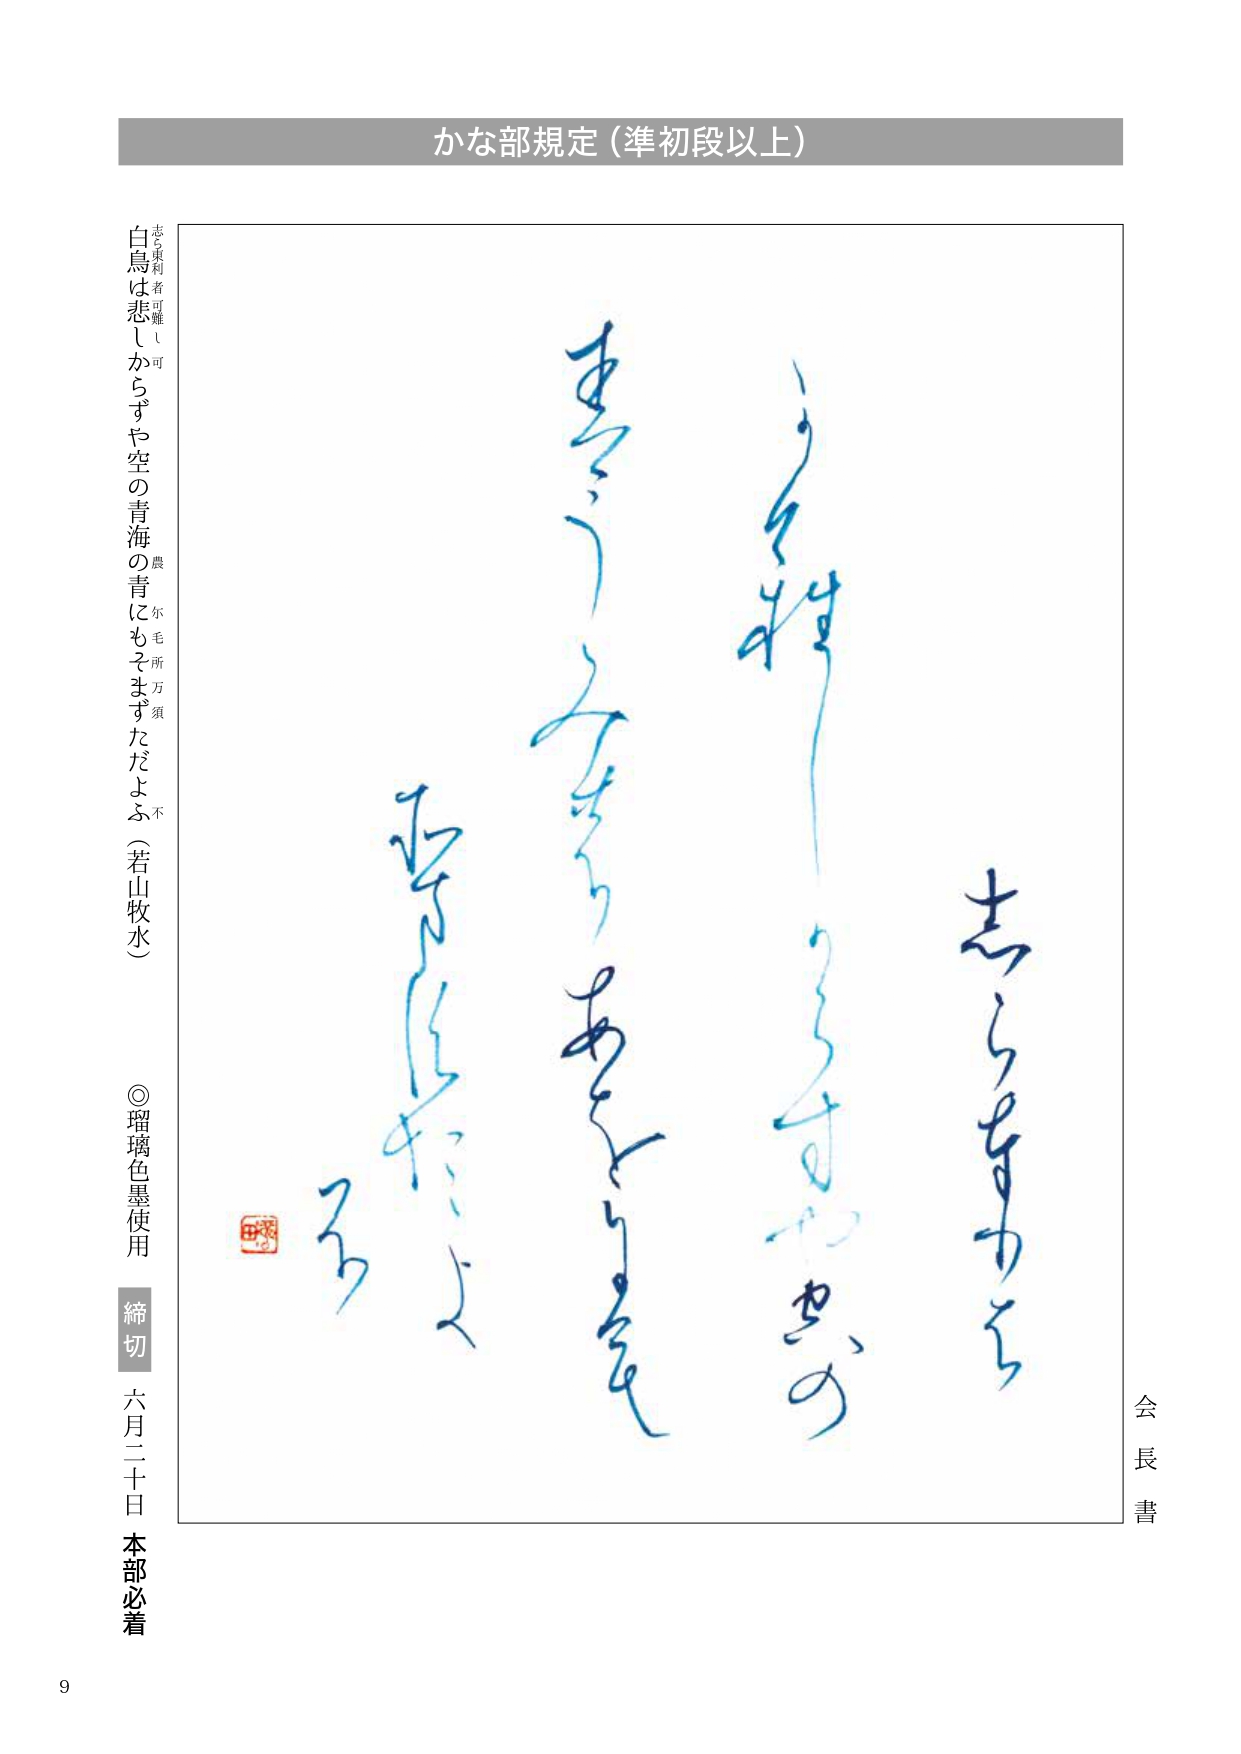 かな部規定（準初段以上）
会長書
志らと利者
可難し可らすや空の
青うみ農あを尓毛
所万須たゝよ
不
志ら東利者可難し可農尓毛所万須不
白鳥は悲しからずや空の青海の青にもそまずただよふ（若山牧水）
◎瑠璃色墨使用
締切 六月二十日 本部必着
9